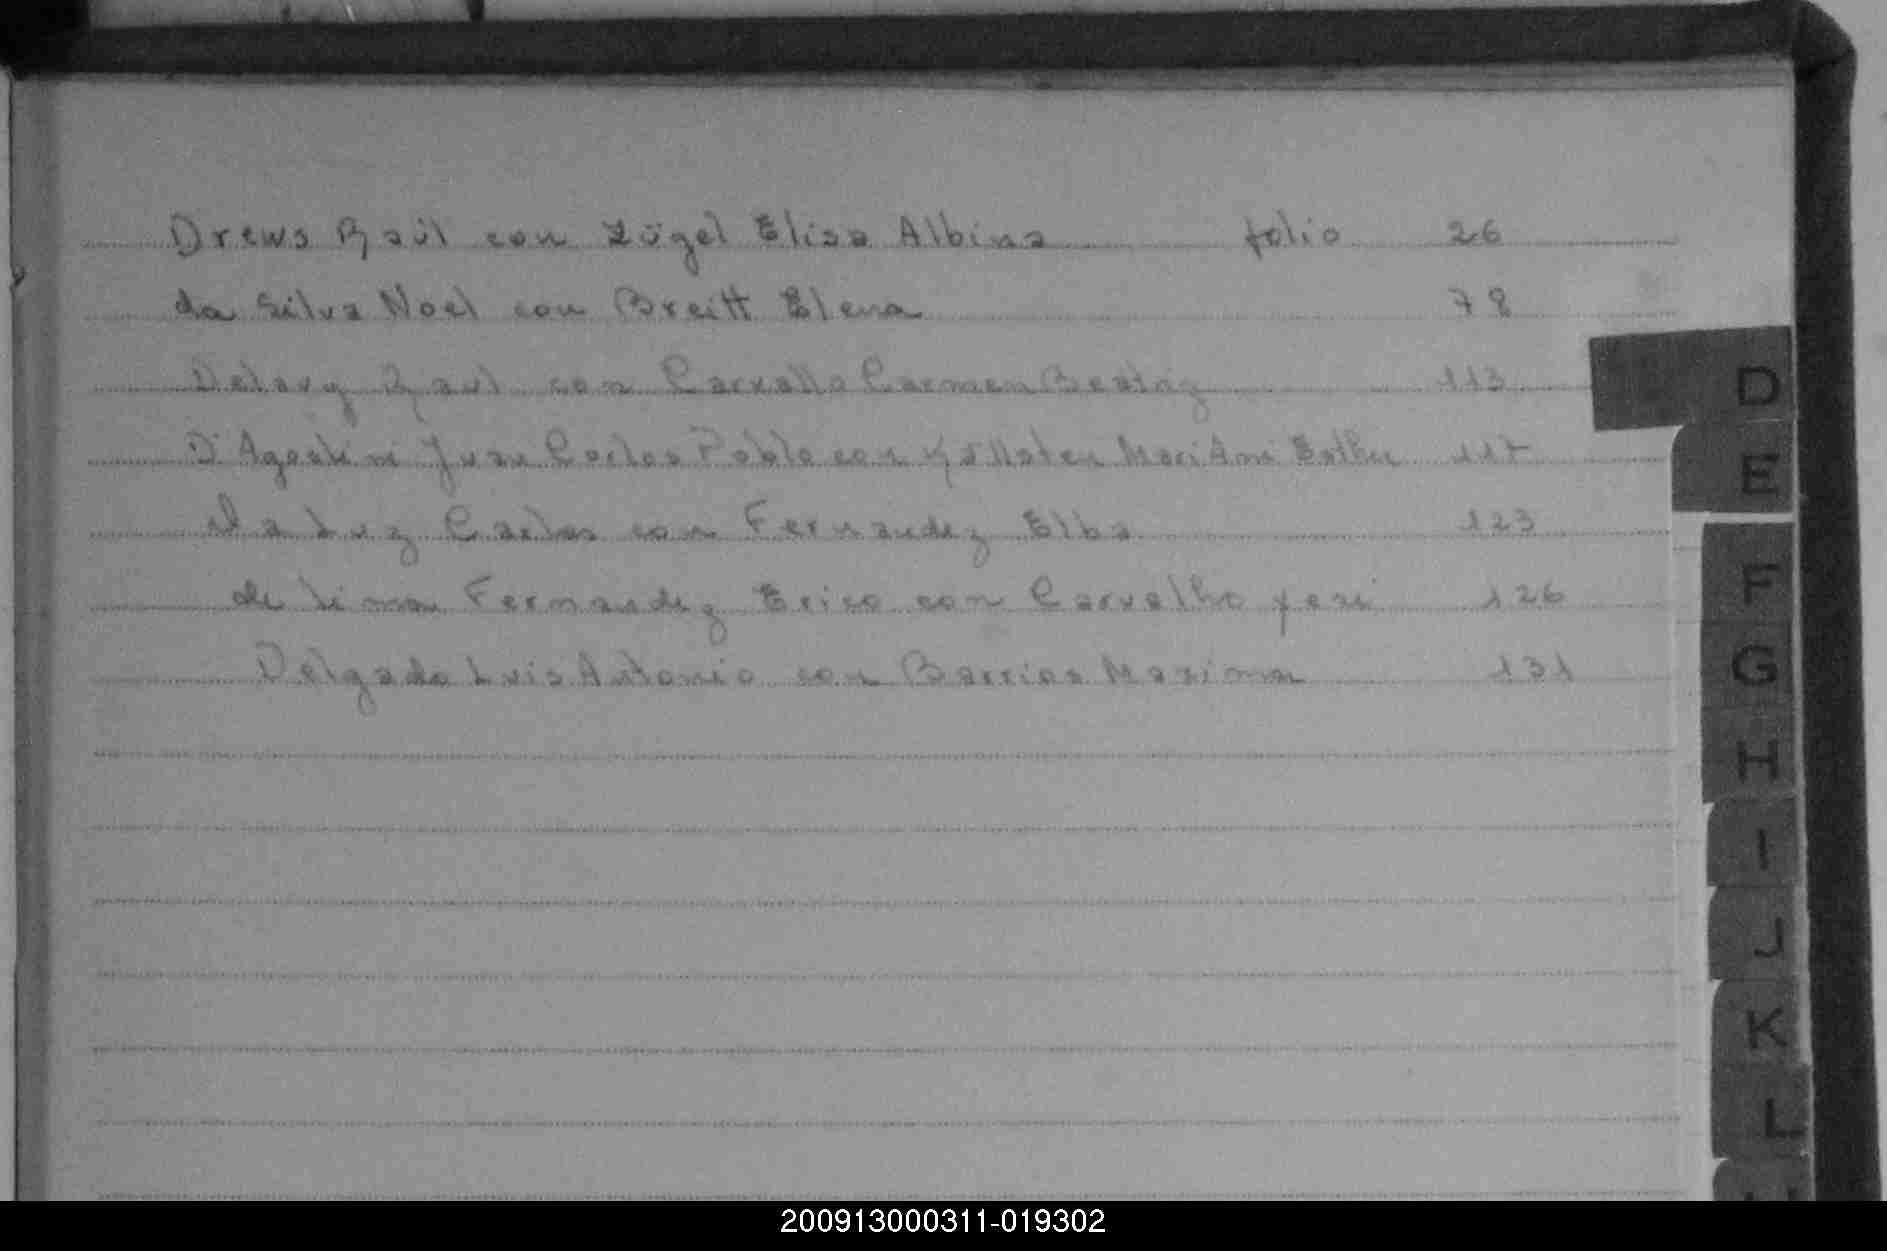 Drews Raúl con Zügel Elisa Albina folio 26
da Silva Noel con Breitt Elena 78
Delavy Raul con Carvallo Carmen Beatriz 113
D'Agostini Juan Carlos Pablo con Esther 117
Da Luz Carlos con Fernandez Elba 123
de Lima Fernandez Erico con Carvalho yeni 126
Delgado Luis Antonio con Barrios Maxima 131
D
E
F
G
H
I
J
K
L
200913000311-019302